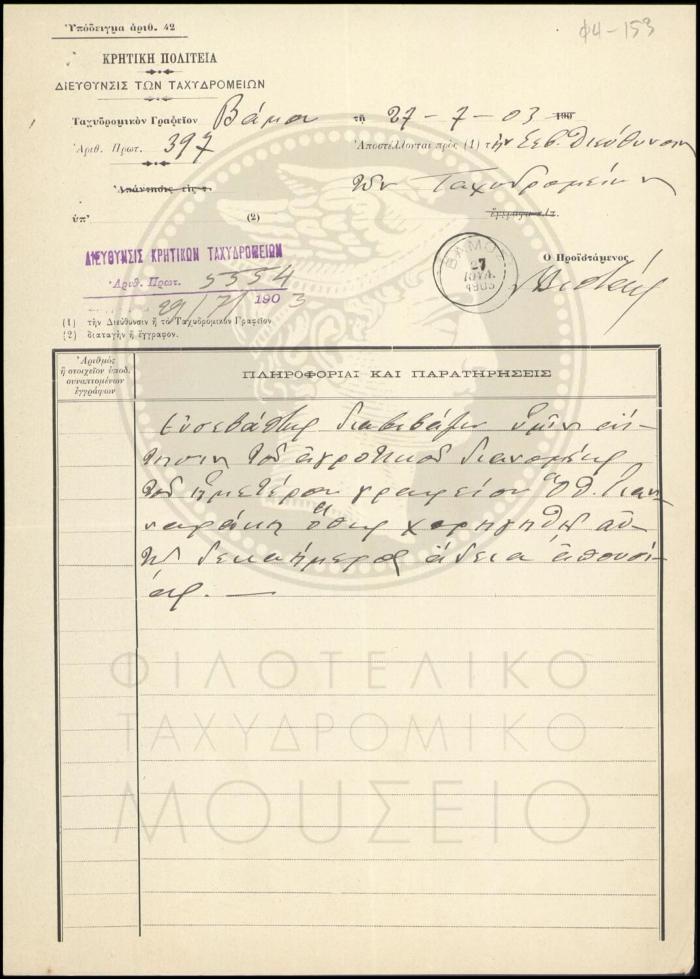 Ὑπόδειγμα ἀριθ. 42
φ4-153
ΚΡΗΤΙΚΗ ΠΟΛΙΤΕΙΑ
ΔΙΕΥΘΥΝΣΙΣ ΤΩΝ ΤΑΧΥΔΡΟΜΕΙΩΝ
Ταχυδρομικὸν Γραφεῖον Βάμου τῇ 27-7-03 190
Ἀριθ. Πρωτ. 397 Ἀποστέλλονται πρὸς (1) τὴν Σεβ. Διεύθυνσιν
τῶν Ταχυδρομείων
Ἀπάντησις εἰς
ὑπ' (2)
ΔΙΕΥΘΥΝΣΙΣ ΚΡΗΤΙΚΩΝ ΤΑΧΥΔΡΟΜΕΙΩΝ
Ἀριθ. Πρωτ. 5554
29/7/1903
ΒΑΜΟΣ
27
ΙΟΥΛ
1903
Ὁ Προϊστάμενος
(1) τὴν Διεύθυνσιν ἢ τὸ Ταχυδρομικὸν Γραφεῖον
(2) διαταγὴν ἢ ἔγγραφον.
Ἀριθμὸς
ἢ στοιχεῖον ὑποδ.
συναπτομένων
ἐγγράφων
ΠΛΗΡΟΦΟΡΙΑΙ ΚΑΙ ΠΑΡΑΤΗΡΗΣΕΙΣ
Εὐσεβάστως διαβιβάζω ὑμῖν αἴ-
τησιν τοῦ ἀγροτικοῦ διανομέως
τοῦ ἡμετέρου γραφείου
ὅπως χορηγηθῇ αὐ-
τῷ δεκαήμερος ἄδεια ἀπουσί-
ας.
ΦΙΛΟΤΕΛΙΚΟ
ΤΑΧΥΔΡΟΜΙΚΟ
ΜΟΥΣΕΙΟ